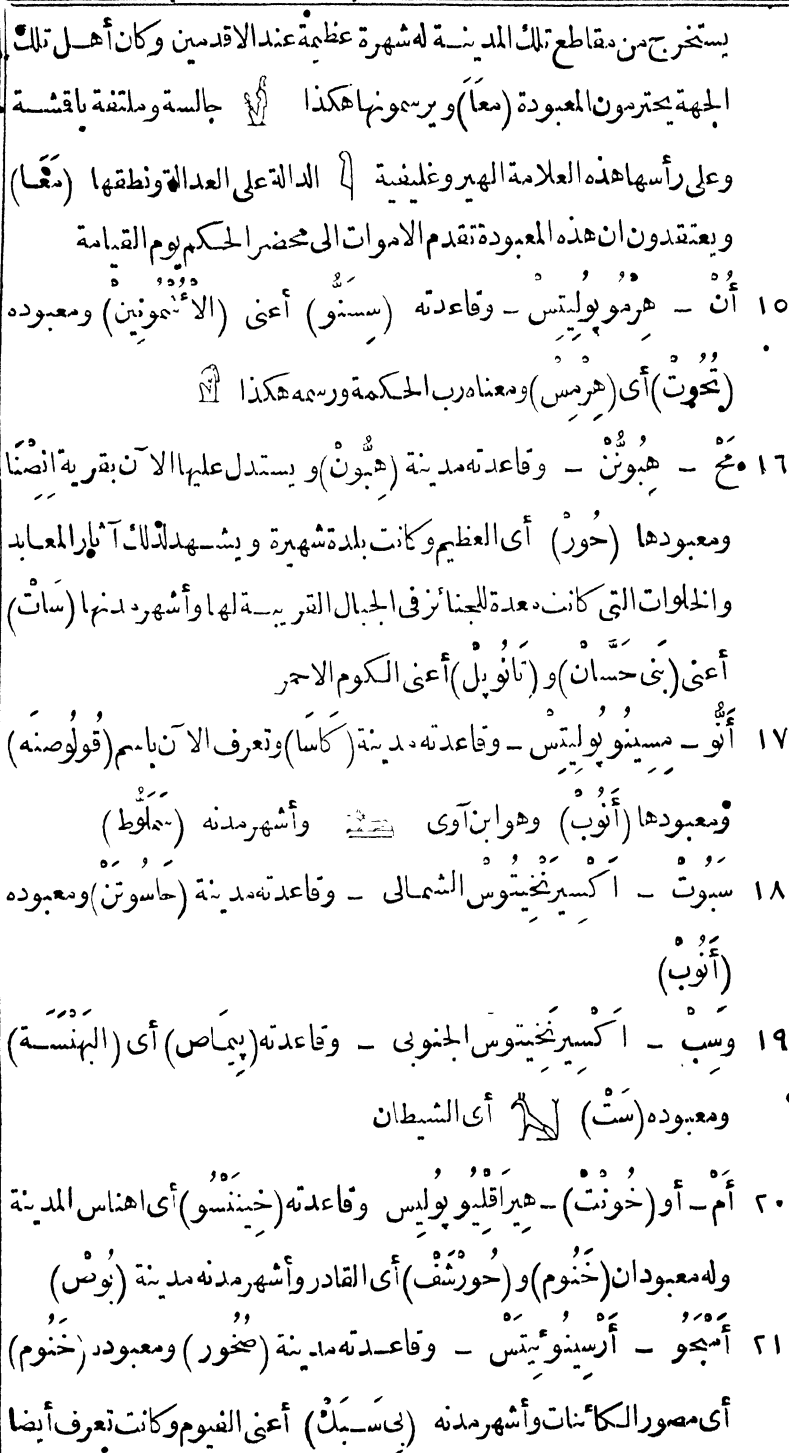 يستخرج من مقاطع تلك المدينة له شهرة عظيمة عند الاقدمين وكان أهل تلك
الجهة يحترمون المعبودة (معَاَ) ويرسمونها هكذا جالسة وملتفة باقشة
وعلى رأسها هذه العلامة الهيروغليفية الدالة على العدالة ونطقها (مَعَا)
ويعتقدون ان هذه المعبودة تقدم الاموات الى محضر الحكم يوم القيامة
١٥ أُنْ ـ هِرْمُوپُولِيتِسْ ـ وقاعدته (سِسنُّو) أعنى (الاُشْمُونِينْ) ومعبوده
(تُحُوتْ) أى (هِرْمِسْ) ومعناه رب الحكمة ورسمه هكذا
١٦ مَحْ ـ هِبُونُنْ ـ وقاعدته مدينة (هِبُّونْ) ويستدل عليها الآن بقرية انْصِنَا
ومعبودها (حُورْ) أى العظيم وكانت بلدة شهيرة ويشهد لذلك آثار المعابد
والخلوات التى كانت معدة للجنائز فى الجبال القريبة لها وأشهر مدنها (سَاتْ)
أعنى (بَنِى حَسَّانْ) و (تَانُوبِلْ) أعنى الكوم الاحمر
١٧ أَنُّو ـ مِسِينُوپُولِيتِسْ ـ وقاعدته مدينة (كَاسَا) وتعرف الآن باسم (قُولُوصنَه)
ومعبودها (أَنُوبْ) وهو ابن آوى وأشهر مدنه (سَمَلُّوط)
١٨ سَبُوتْ ـ اَكْسِيرَنْخِيتُوسْ الشمالى ـ وقاعدته مدينة (حَاسُوتَنْ) ومعبوده
(أَنُوبْ)
١٩ وَسِبْ ـ اَكْسِيرَنْخِيتوس الجنوبى ـ وقاعدته (پِيمَاص) أى (البَهْنَسَة)
ومعبوده (سَتْ) أى الشيطان
٢٠ أَمْ ـ أو (خُونْتْ) ـ هِيرَاقْلِيُوپُولِيس وقاعدته (خِينَنْسُو) أى اهناس المدينة
وله معبودان (خَنُوم) و (حُورْشَفْ) أى القادر وأشهر مدنه مدينة (بُوصْ)
٢١ أَمْبَحُو ـ أَرْسِينُوئِيتَسْ ـ وقاعدته مدينة (صُحُور) ومعبوده (خَنُوم)
أى مصور الكائنات وأشهر مدنه (بى سَبَكْ) أعنى الفيوم وكانت تعرف أيضا